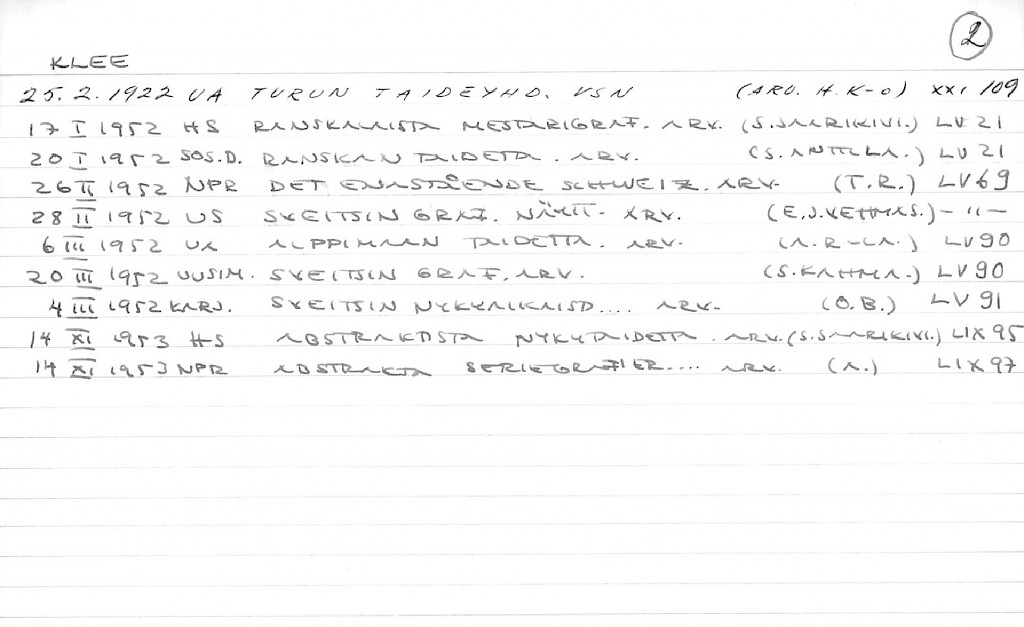 2
KLEE
25.2.1922 UA TURUN TAIDEYHD. VSN (ARV. H.K-O) XXI 109
17 I 1952 HS RANSKALAISTA MESTARIGRAF. ARV. (S.SAARIKIVI.) LV 21
20 I 1952 SOS.D. RANSKAN TAIDETTA. ARV. (S. ANTTILA.) LV 21
26 II 1952 NPR DET ENASTÅENDE SCHWEIZ. ARV. (T.R.) LV 69
28 II 1952 US SVEITSIN GRAF. NÄYTT. ARV. (E.J.VEHMAS.) - 11 -
6 III 1952 UA ALPPIMAAN TAIDETTA. ARV. (A.R-LA.) LV 90
20 III 1952 UUSIM. SVEITSIN GRAF. ARV. (S.KAHMA.) LV 90
4 III 1952 KARJ. SVEITSIN NYKYAIKAISD.... ARV. (O.B.) LV 91
14 XI 1953 HS ABSTRAKTISTA NYKYTAIDETTA. ARV. (S.SAARIKIVI.) LIX 95
14 XI 1953 NPR ABSTRAKTA SERIEGRAFIER.... ARV. (A.) LIX 97